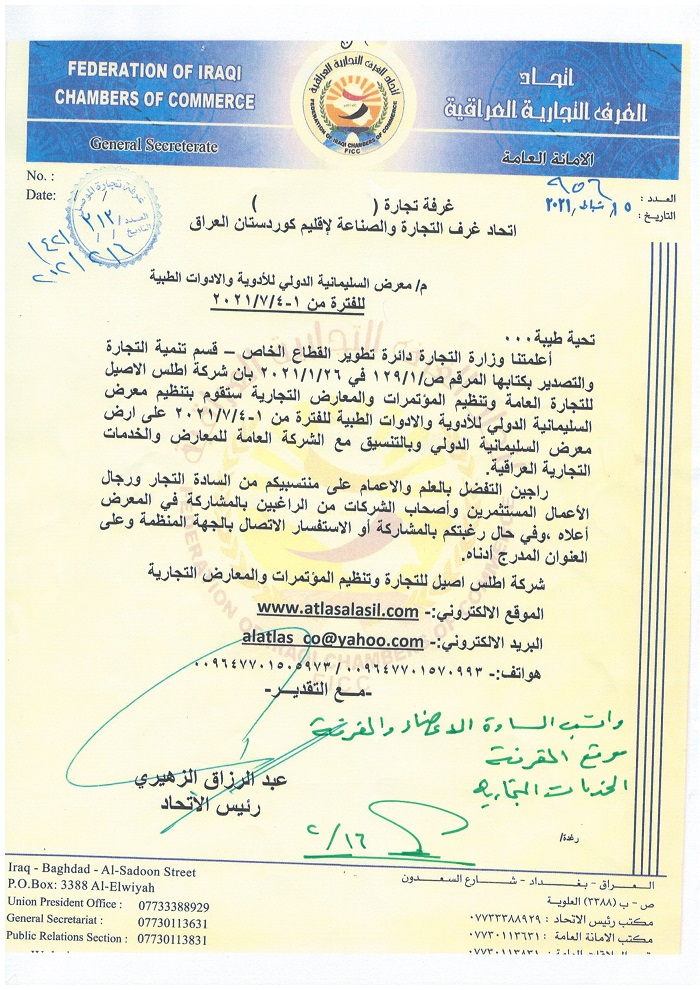 FEDERATION OF IRAQI
CHAMBERS OF COMMERCE
General Secreterate
اتحاد الغرف التجارية العراقية
FEDERATION OF IRAQI CHAMBERS OF COMMERCE
FICC
اتحاد
الغرف التجارية العراقية
الامانة العامة
No. :
Date: / /
غرفة تجارة الموصل
العدد / ٢١٢
التاريخ / /
العدد : ٩٥٦
التاريخ : ١٥ شباط ٢٠٢١
غرفة تجارة ( )
اتحاد غرف التجارة والصناعة لإقليم كوردستان العراق
م/ معرض السليمانية الدولي للأدوية والادوات الطبية
للفترة من ١-٢٠٢١/٧/٤
تحية طيبة...
أعلمتنا وزارة التجارة دائرة تطوير القطاع الخاص – قسم تنمية التجارة
والتصدير بكتابها المرقم ص/١٢٩/١ في ٢٠٢١/١/٢٦ بان شركة اطلس الاصيل
للتجارة العامة وتنظيم المؤتمرات والمعارض التجارية ستقوم بتنظيم معرض
السليمانية الدولي للأدوية والادوات الطبية للفترة من ١-٢٠٢١/٧/٤ على ارض
معرض السليمانية الدولي وبالتنسيق مع الشركة العامة للمعارض والخدمات
التجارية العراقية.
راجين التفضل بالعلم والاعمام على منتسبيكم من السادة التجار ورجال
الأعمال المستثمرين وأصحاب الشركات من الراغبين بالمشاركة في المعرض
أعلاه ،وفي حال رغبتكم بالمشاركة أو الاستفسار الاتصال بالجهة المنظمة وعلى
العنوان المدرج أدناه.
شركة اطلس اصيل للتجارة وتنظيم المؤتمرات والمعارض التجارية
الموقع الالكتروني:- www.atlasalasil.com
البريد الالكتروني:- alatlas_co@yahoo.com
هواتف:- ٠٠٩٦٤٧٧٠١٥٧٠٩٩٣/ ٠٠٩٦٤٧٧٠١٥٠٥٩٧٣
-مـع التقديـر-
السادة الاعضاء
موقع الغرفة
الخدمات التجارية
عبد الرزاق الزهيري
رئيس الاتحاد
٢/١٦
رغدة/
Iraq - Baghdad - Al-Sadoon Street
P.O.Box: 3388 Al-Elwiyah
Union President Office : 07733388929
General Secretariat : 07730113631
Public Relations Section : 07730113831
العـراق - بـغـداد - شـارع السعـدون
ص - ب (٣٣٨٨) العلوية
مكتب رئيس الاتحاد : ٠٧٧٣٣٣٨٨٩٢٩
مكتب الامانة العامة : ٠٧٧٣٠١١٣٦٣١